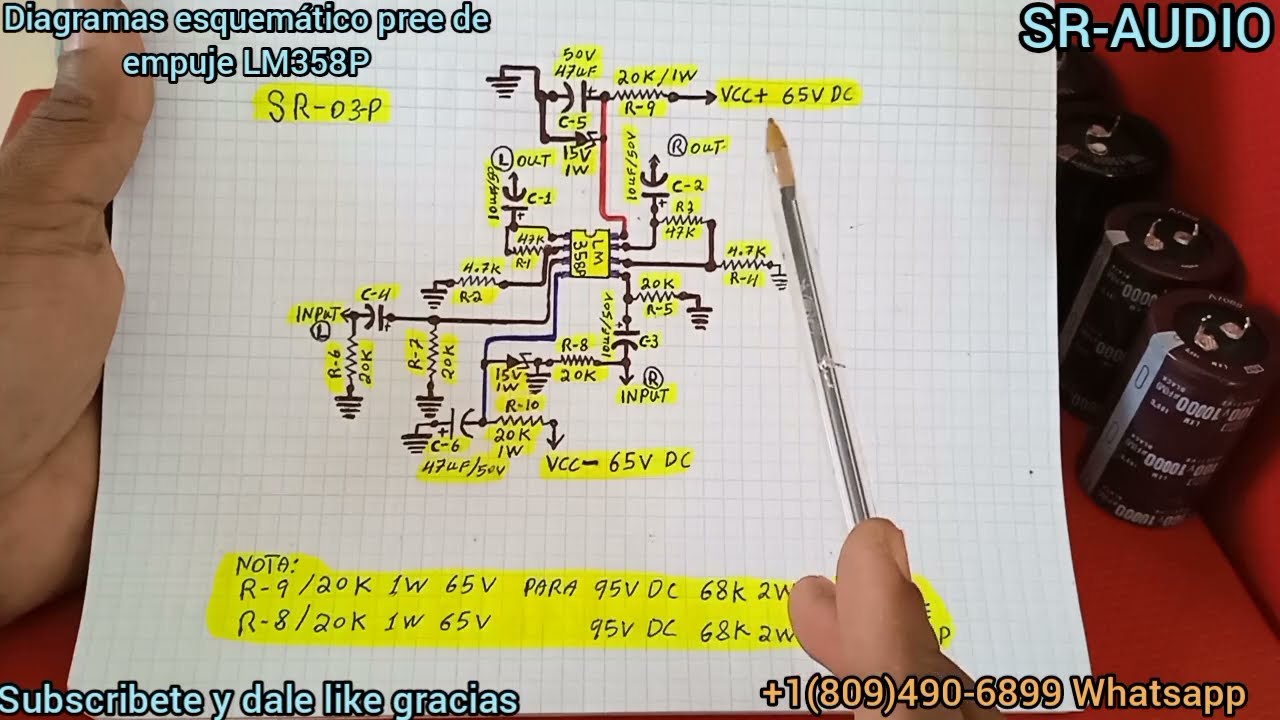 Diagramas esquemático pree de
empuje LM358P
SR-AUDIO
SR-03-P
50V
47uF
C-5
15V
1W
20K/1W
R-9
VCC+ 65V DC
L OUT
10uF/50V
C-1
R OUT
10uF/50V
C-2
R3
47K
47K
R-1
LM
358P
4.7K
R-2
4.7K
R-4
20K
R-5
INPUT
L
C-4
R-6
20K
R-7
20K
10uF/50V
C-3
R
INPUT
R-8
20K
15V
1W
R-10
20K
1W
C-6
47uF/50V
VCC- 65V DC
NOTA:
R-9/20K 1W 65V PARA 95V DC 68K 2W
R-8/20K 1W 65V 95V DC 68K 2W
Subscribete y dale like gracias
+1(809)490-6899 Whatsapp